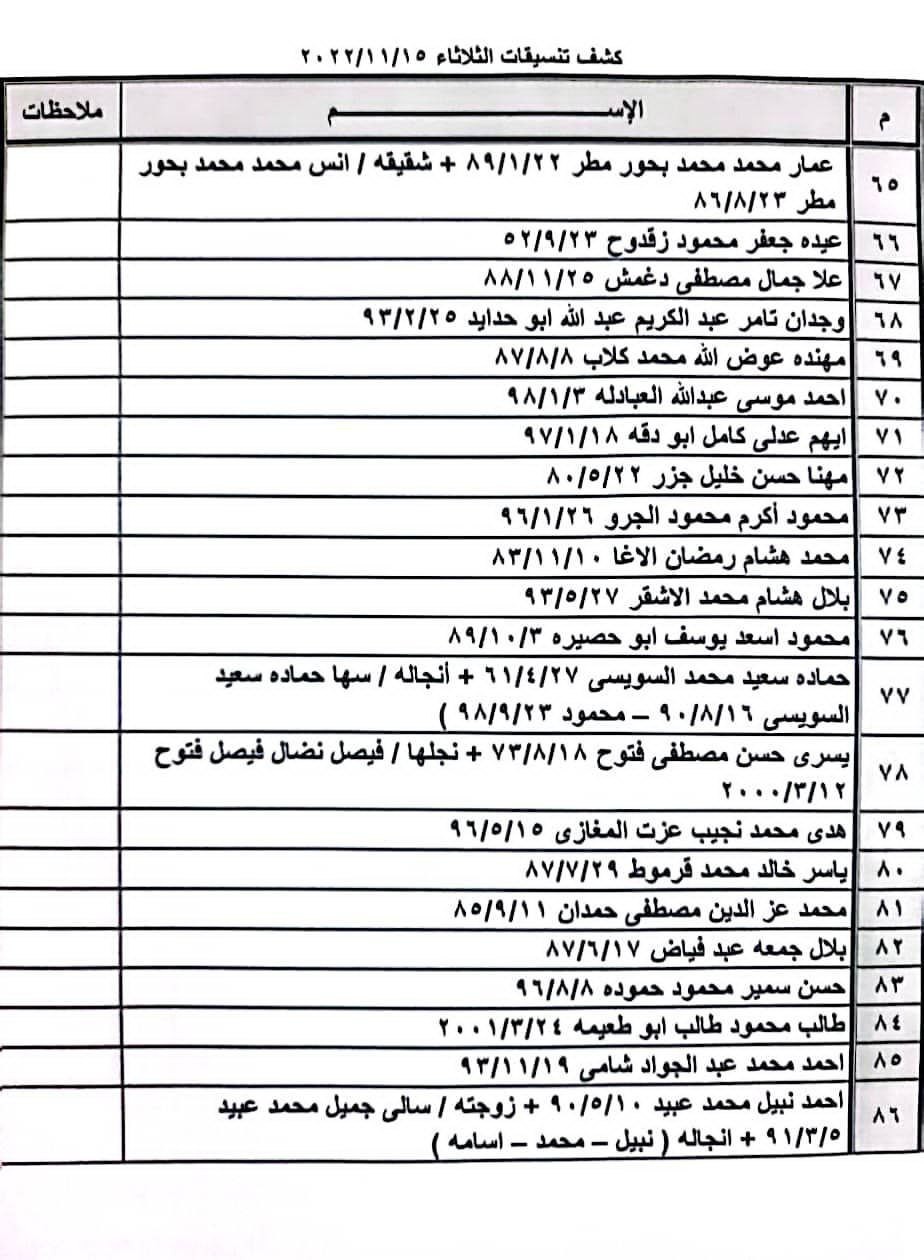 كشف تنسيقات الثلاثاء ٢٠٢٢/١١/١٥
م الإســـــــــــــم ملاحظات
٦٥ عمار محمد محمد بحور مطر ٨٩/١/٢٢ + شقيقه / انس محمد محمد بحور
مطر ٨٦/٨/٢٣
٦٦ عيده جعفر محمود زقدوح ٥٢/٩/٢٣
٦٧ علا جمال مصطفى دغمش ٨٨/١١/٢٥
٦٨ وجدان تامر عبد الكريم عبد الله ابو حدايد ٩٣/٢/٢٥
٦٩ مهنده عوض الله محمد كلاب ٨٧/٨/٨
٧٠ احمد موسى عبدالله العبادله ٩٨/١/٣
٧١ ايهم عدلى كامل ابو دقه ٩٧/١/١٨
٧٢ مهنا حسن خليل جزر ٨٠/٥/٢٢
٧٣ محمود أكرم محمود الجرو ٩٦/١/٢٦
٧٤ محمد هشام رمضان الاغا ٨٣/١١/١٠
٧٥ بلال هشام محمد الاشقر ٩٣/٥/٢٧
٧٦ محمود اسعد يوسف ابو حصيره ٨٩/١٠/٣
٧٧ حماده سعيد محمد السويسى ٦١/٤/٢٧ + أنجاله / سها حماده سعيد
السويسى ٩٠/٨/١٦ – محمود ٩٨/٩/٢٣ )
٧٨ يسرى حسن مصطفى فتوح ٧٣/٨/١٨ + نجلها / فيصل نضال فيصل فتوح
٢٠٠٠/٣/١٢
٧٩ هدى محمد نجيب عزت المغازى ٩٦/٥/١٥
٨٠ ياسر خالد محمد قرموط ٨٧/٧/٢٩
٨١ محمد عز الدين مصطفى حمدان ٨٥/٩/١١
٨٢ بلال جمعه عبد فياض ٨٧/٦/١٧
٨٣ حسن سمير محمود حموده ٩٦/٨/٨
٨٤ طالب محمود طالب ابو طعيمه ٢٠٠١/٣/٢٤
٨٥ احمد محمد عبد الجواد شامى ٩٣/١١/١٩
٨٦ احمد نبيل محمد عبيد ٩٠/٥/١٠ + زوجته / سالى جميل محمد عبيد
٩١/٣/٥ + انجاله ( نبيل – محمد – اسامه )